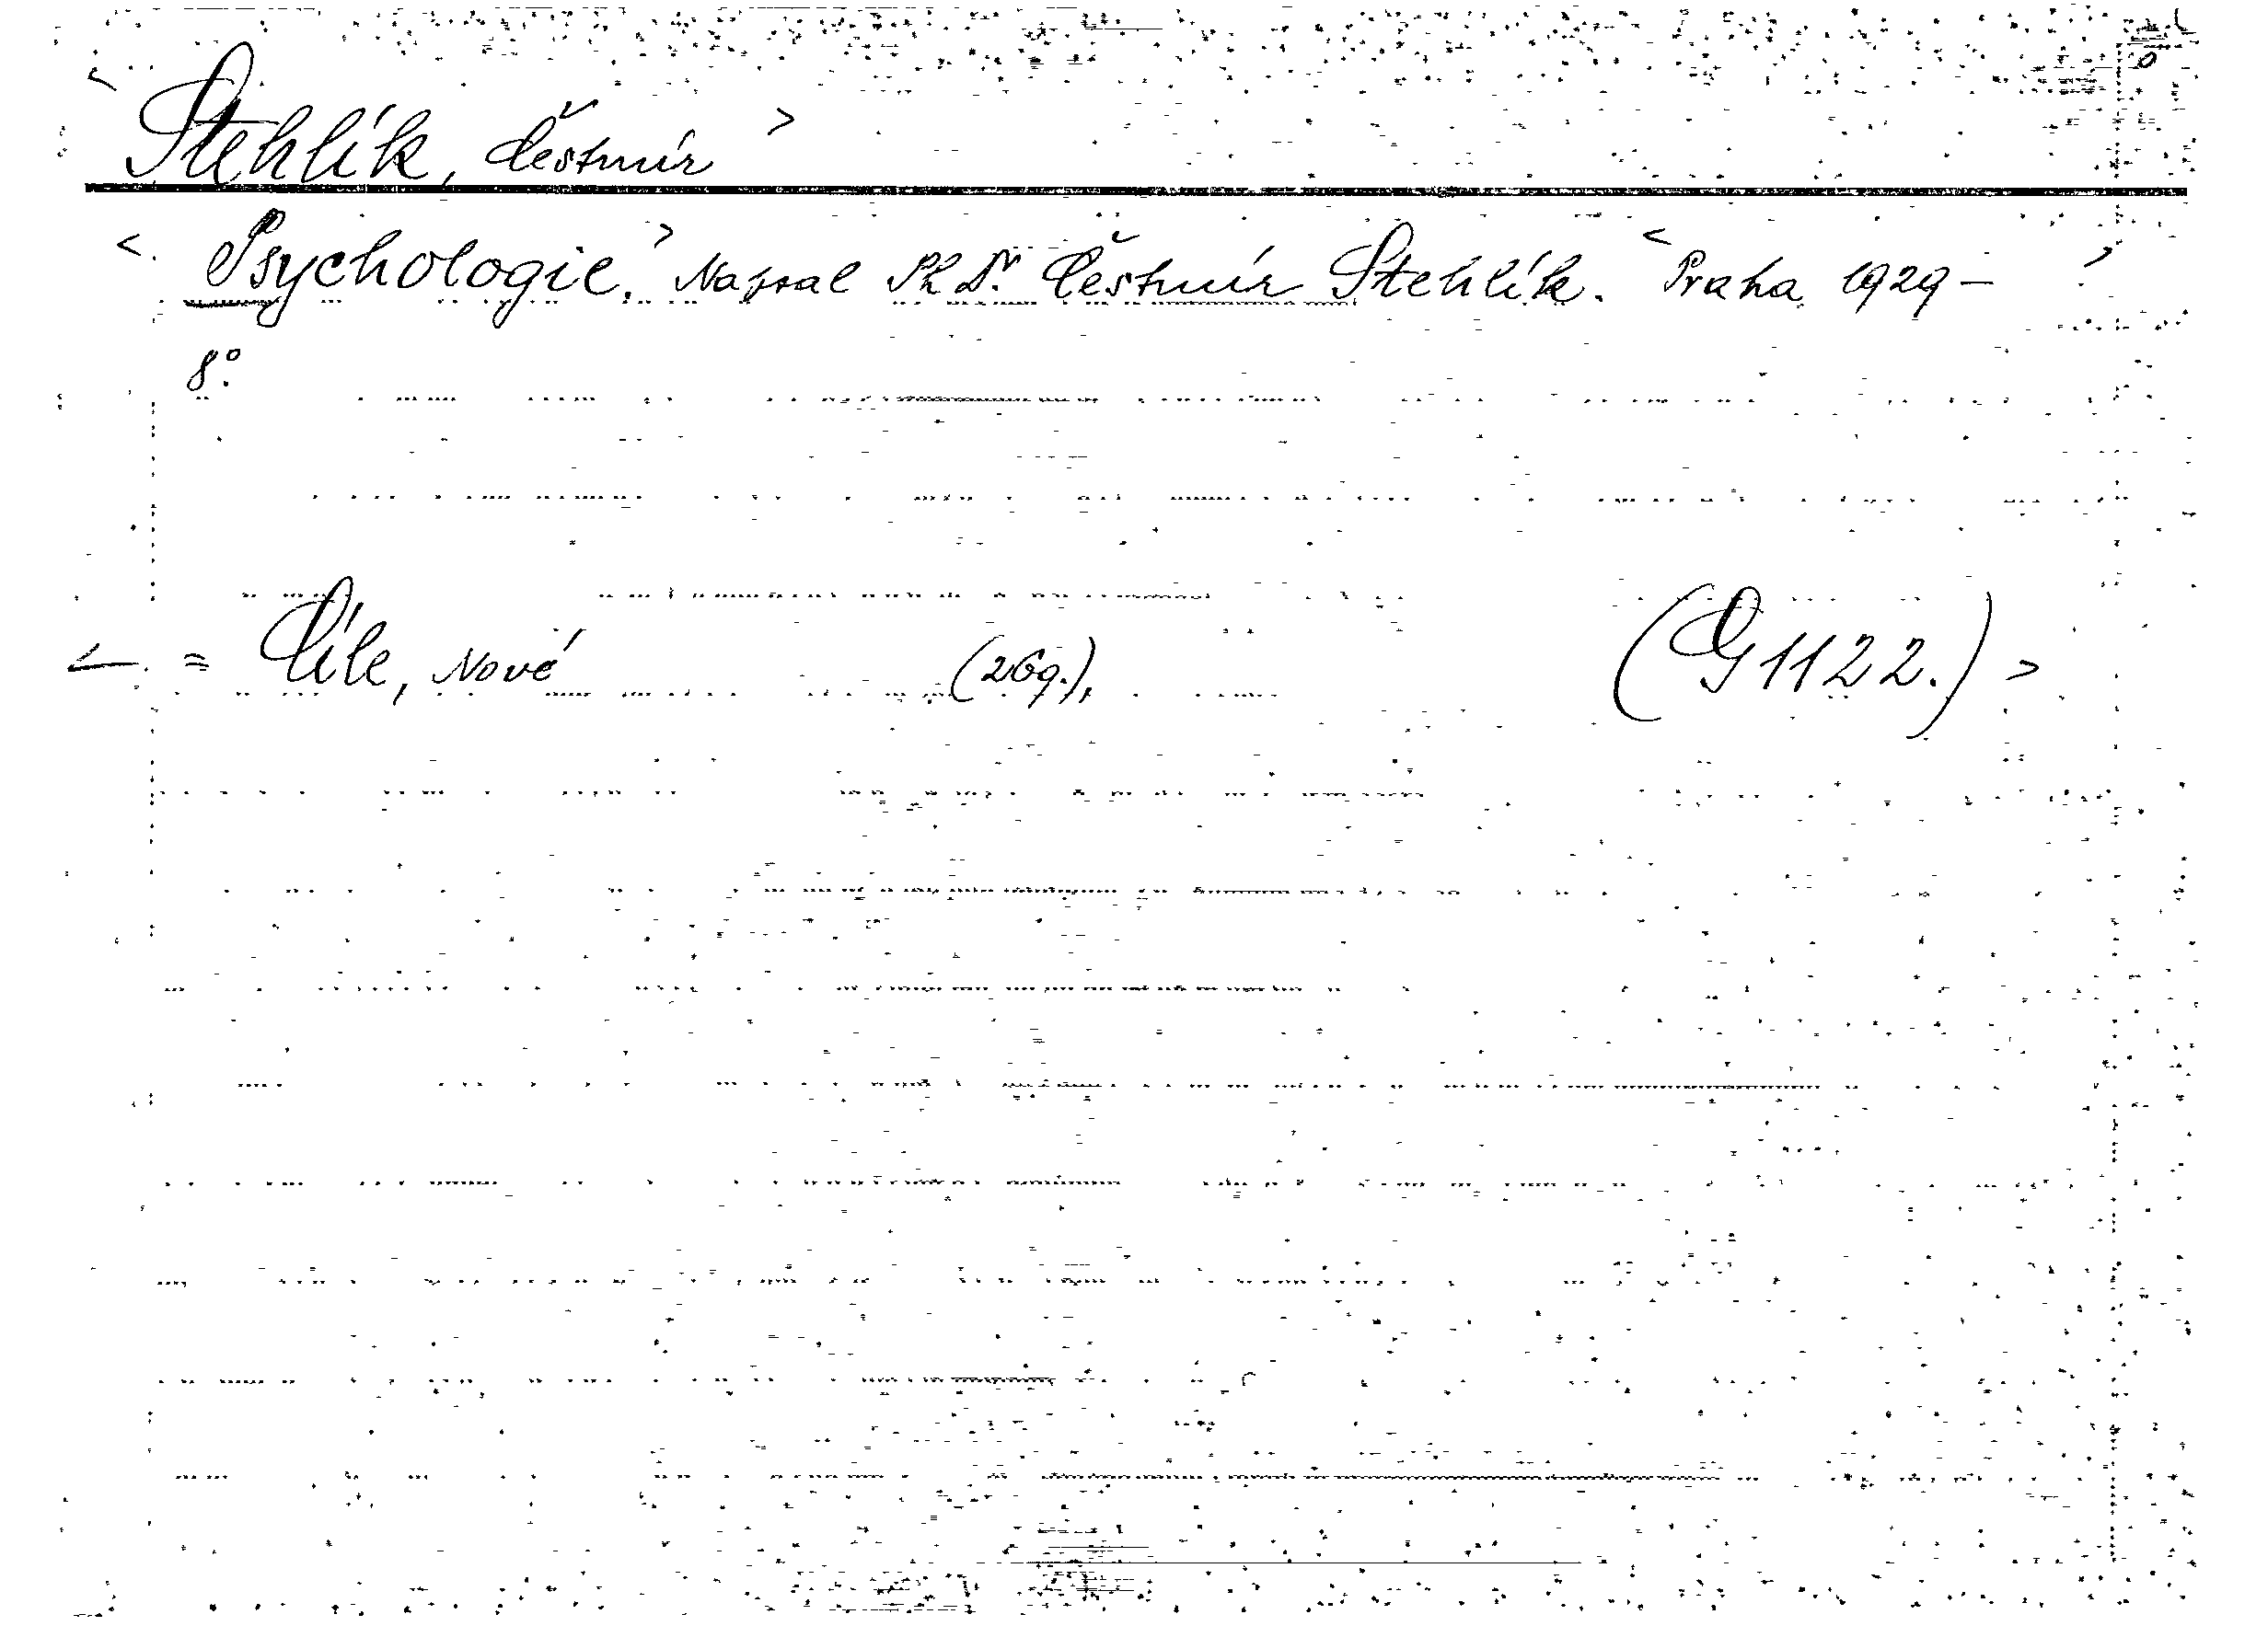 < Stehlík, Čestmír >
< Psychologie. > Napsal PhDr. Čestmír Stehlík. < Praha 1929 - >
8°.
<. = Cíle, Nové (269.), (G 1122.) >